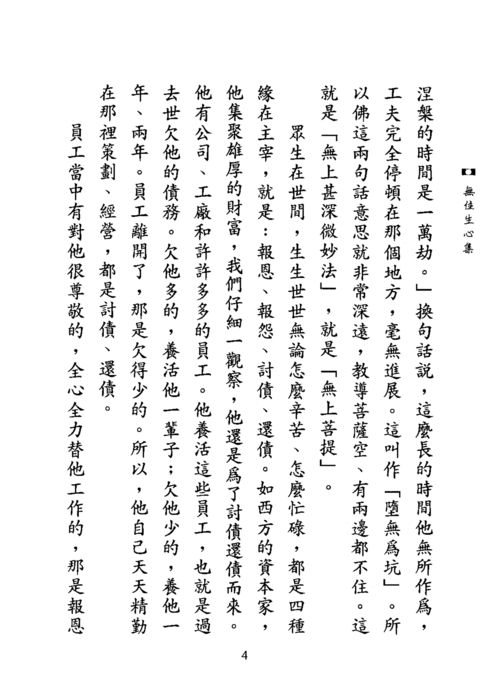 無住生心集
涅槃的時間是一萬劫。」換句話說，這麼長的時間他無所作爲，
工夫完全停頓在那個地方，毫無進展。這叫作「墮無爲坑」。所
以佛這兩句話意思就非常深遠，教導菩薩空、有兩邊都不住。這
就是「無上甚深微妙法」，就是「無上菩提」。
眾生在世間，生生世世無論怎麼辛苦、怎麼忙碌，都是四種
緣在主宰，就是：報恩、報怨、討債、還債。如西方的資本家，
他集聚雄厚的財富，我們仔細一觀察，他還是爲了討債還債而來。
他有公司、工廠和許許多多的員工。他養活這些員工，也就是過
去世欠他的債務。欠他多的，養活他一輩子；欠他少的，養他一
年、兩年。員工離開了，那是欠得少的。所以，他自己天天精勤
在那裡策劃、經營，都是討債、還債。
員工當中有對他很尊敬的，全心全力替他工作的，那是報恩
4